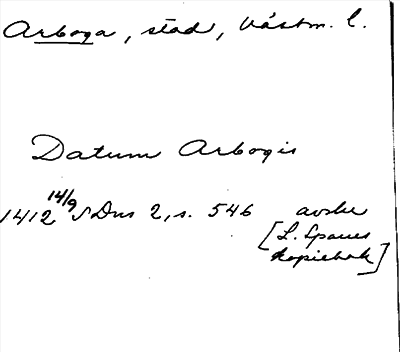 Arboga, stad, Västm. l.
Datum Arbogis
1412 14/9 SDns 2, s. 546 avskr
[L. Spaues
kopiebok]